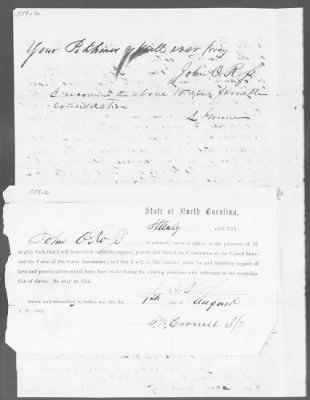 Your Petitioner will ever pray
John O. Ross
I recommend the above to your favorable
consideration
State of North Carolina,
Stanly COUNTY.
I John O Ross do solemnly swear or affirm, in the presence of Al-
mighty God, that I will henceforth faithfully support, protect and defend the Constitution of the United States
and the Union of the States thereunder; and that I will, in like manner, abide by and faithfully support all
laws and proclamations which have been made during the existing rebellion with reference to the emancipa-
tion of slaves. So help me God.
Sworn and subscribed to before me, this the day of August
A. D. 1865.